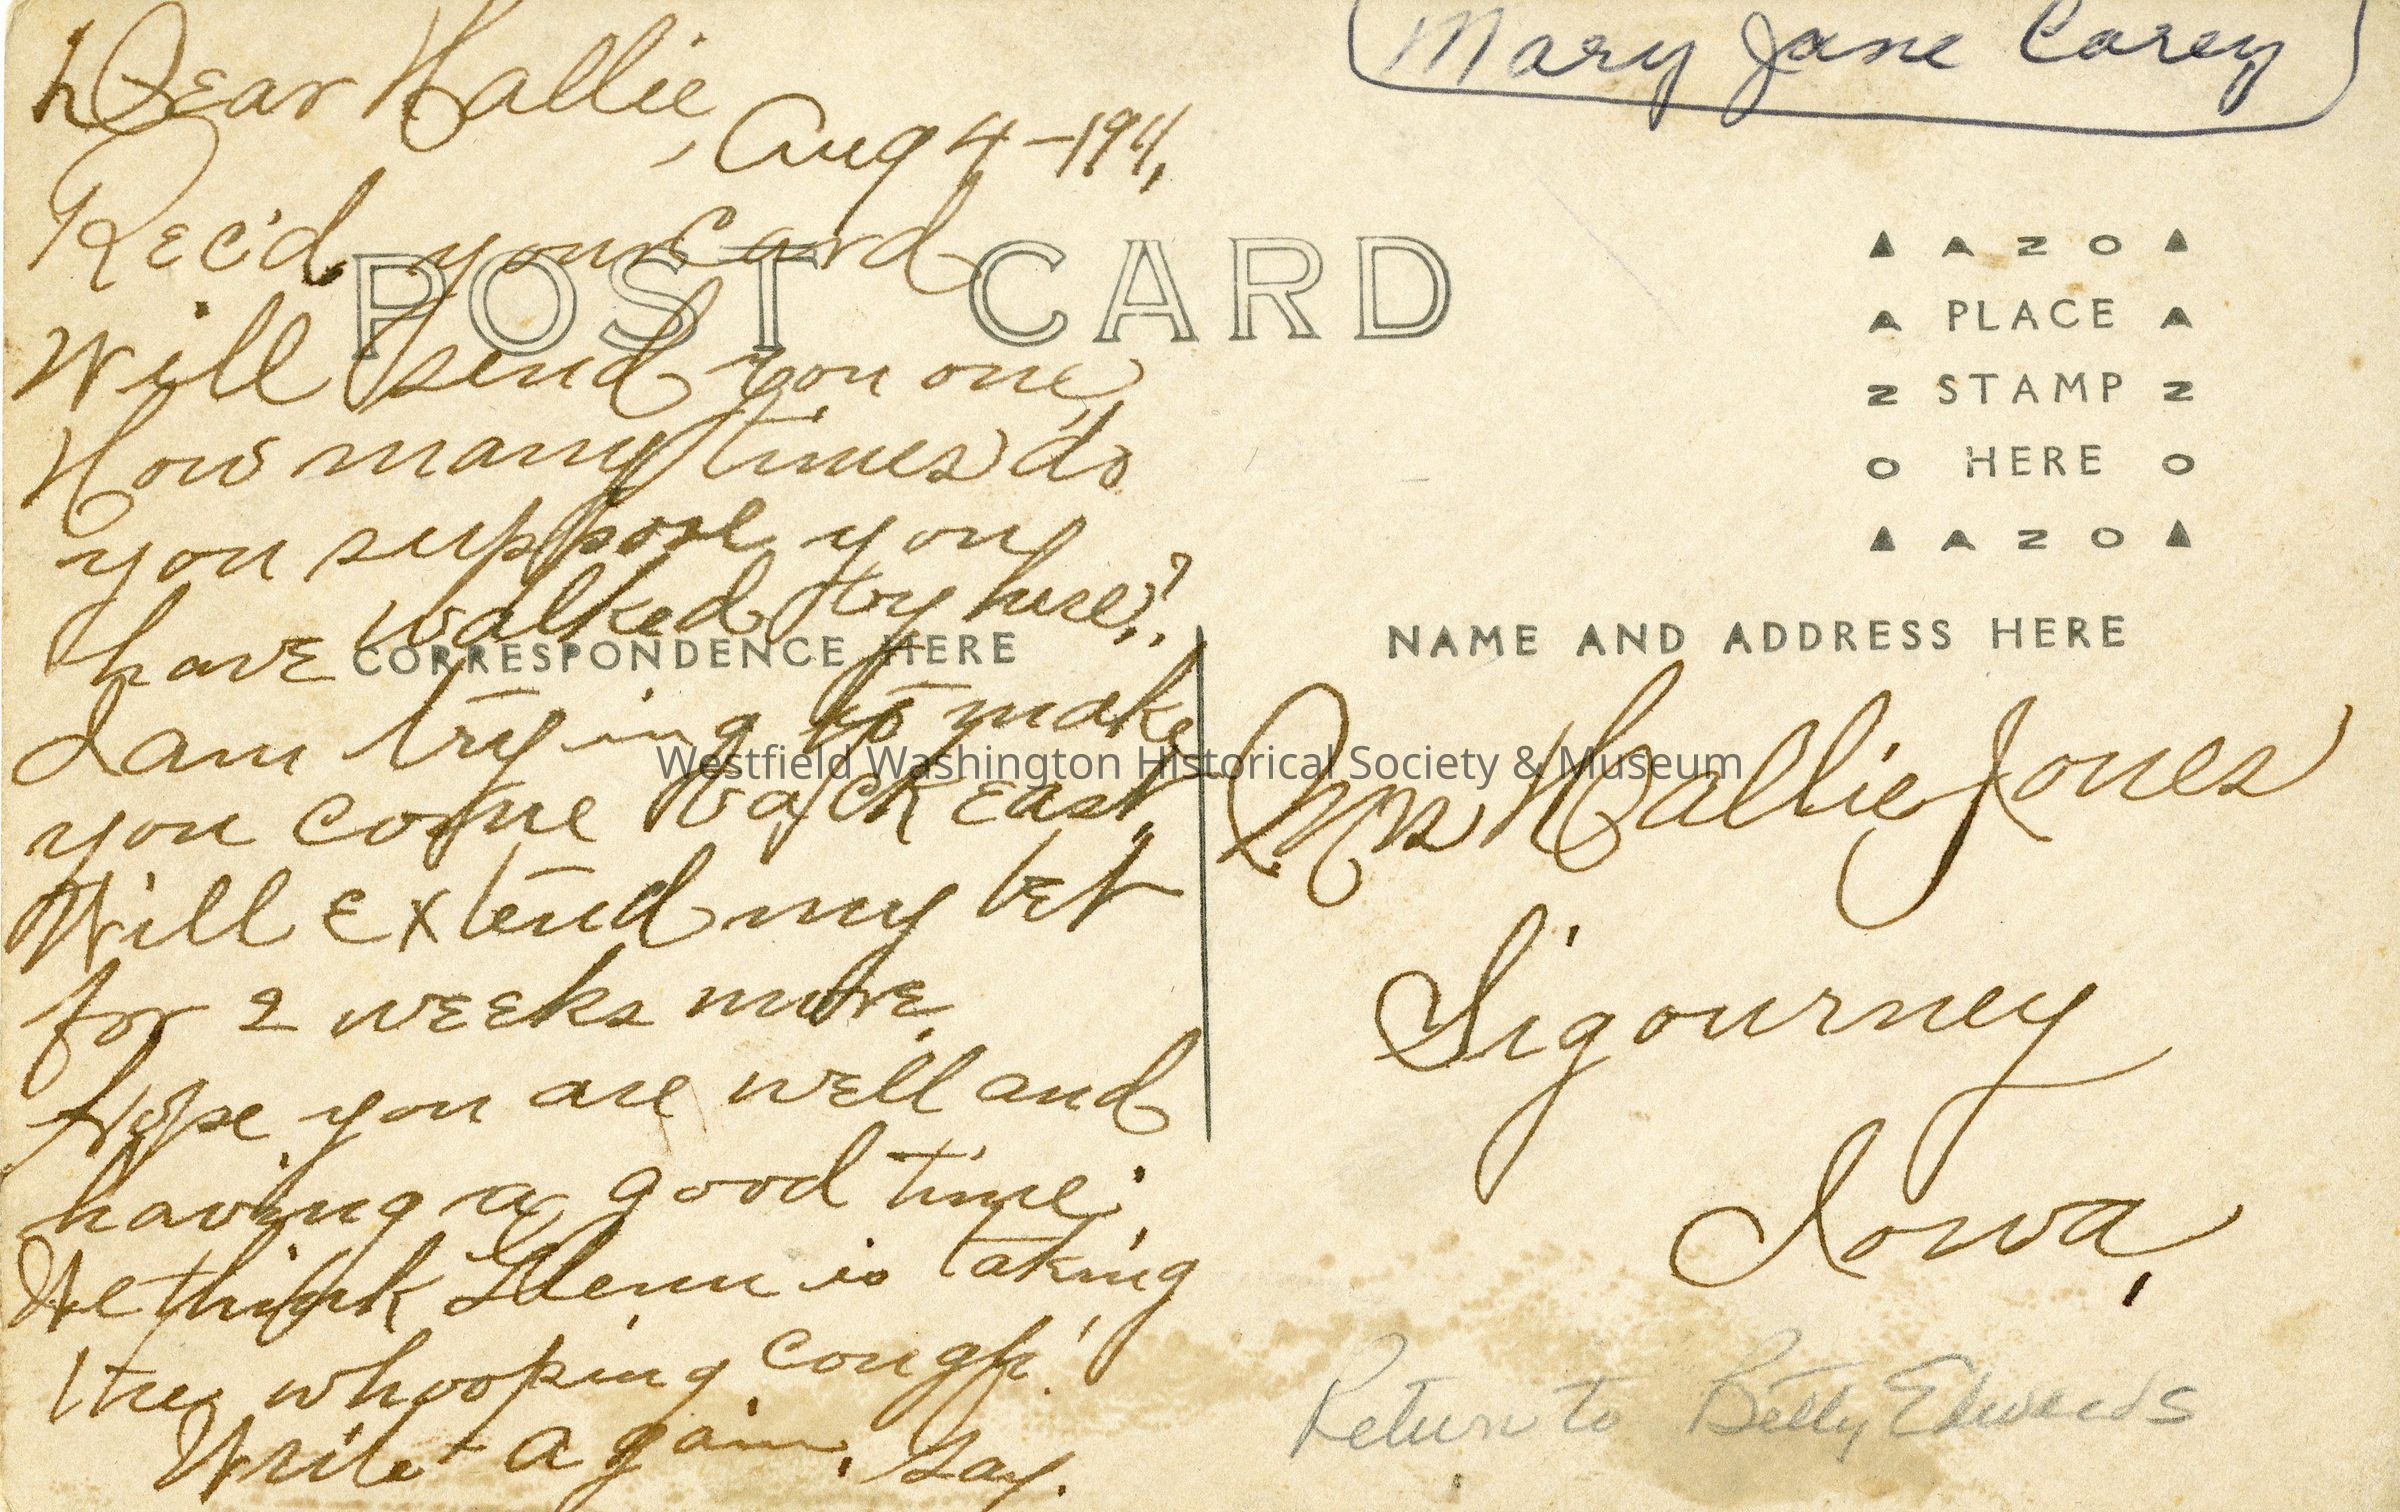 Mary Jane Carey
Dear Hallie,
Aug 4-1911,
Rec'd your Card
Will send you one,
How many times do
you suppose you
have walked by here?
I am trying to make
you come back east,
Will extend my bet
for 2 weeks more.
Hope you are well and
having a good time.
We think Glenn is taking
the whooping cough.
Write again. Gay.
POST CARD
AZO
A PLACE A
Z STAMP Z
O HERE O
AZO
CORRESPONDENCE HERE
NAME AND ADDRESS HERE
Mrs Hallie Jones
Sigourney
Iowa,
Return to Betty Edwards
Westfield Washington Historical Society & Museum